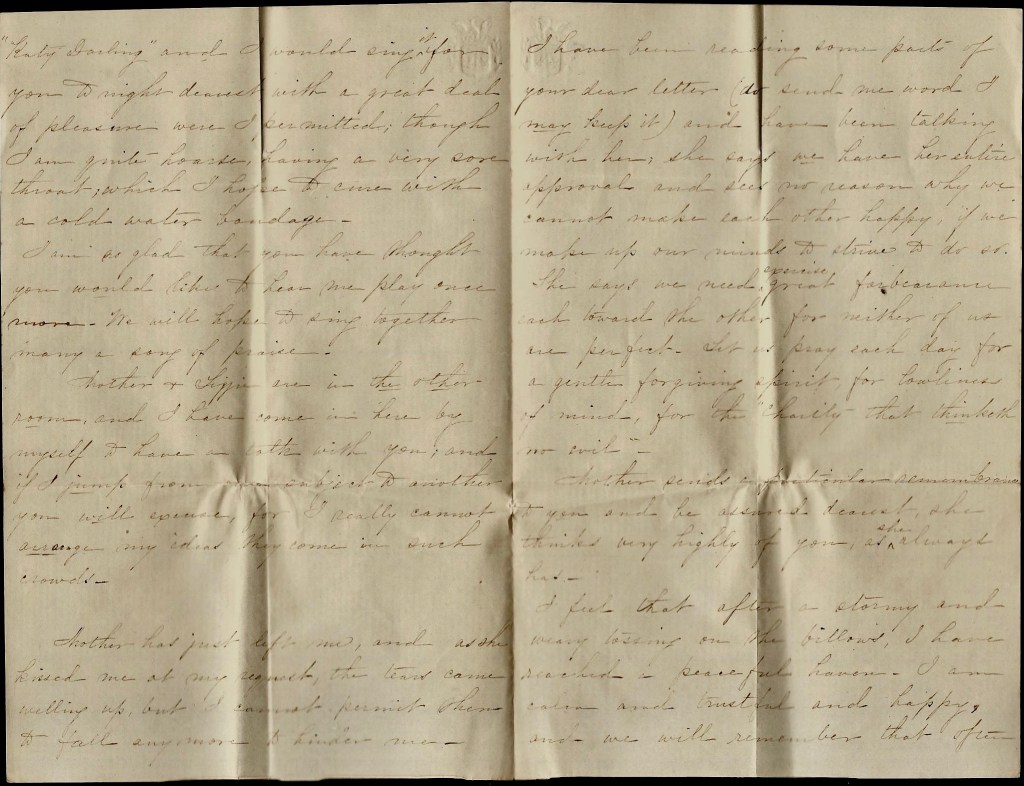 "Katy Darling" and I would sing it for
you to night dearest with a great deal
of pleasure were I permitted; though
I am quite hoarse, having a very sore
throat; which I hope to cure with
a cold water bandage -
I am so glad that you have thought
you would like to hear me play once
more - We will hope to sing together
many a song of praise -
Mother & Lizzie are in the other
room, and I have come in here by
myself to have a talk with you; and
if I jump from one subject to another
you will excuse, for I really cannot
arrange my ideas they come in such
crowds -
Mother has just left me, and as she
kissed me at my request, the tears came
welling up, but I cannot permit them
to fall anymore to hinder me -
I have been reading some parts of
your dear letter (do send me word I
may keep it) and have been talking
with her; she says we have her entire
approval and sees no reason why we
cannot make each other happy, if we
make up our minds to strive to do so.
She says we need exercise great forbearance
each toward the other for neither of us
are perfect - Let us pray each day for
a gentle forgiving spirit for lowliness
of mind, for the "Charity that thinketh
no evil" -
Mother sends a particular remembrance
to you and be assured dearest, she
thinks very highly of you, as she always
has -
I feel that after a stormy and
weary tossing on the billows, I have
reached a peaceful haven - I am
calm and trustful and happy,
and we will remember that often